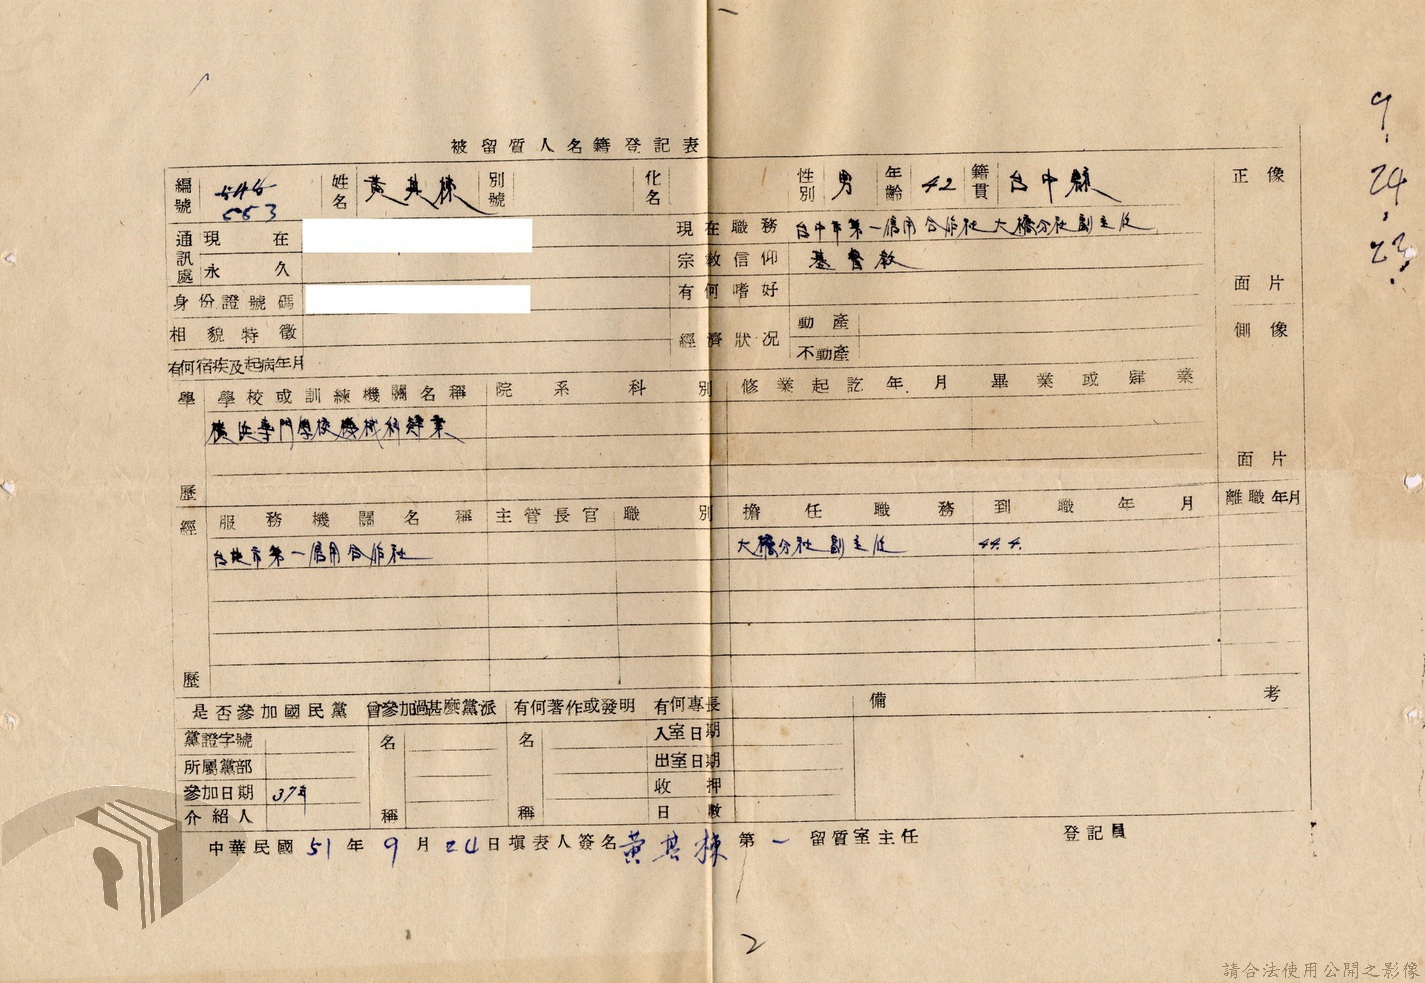 9.
24.
23.
被留質人名籍登記表
編號 545 553 姓名 黃其棟 別號 化名 性別 男 年齡 42 籍貫 台中縣 正像
通訊處 現在 現在職務 台中市第一信用合作社大橋分社副主任
永久 宗教信仰 基督教
身份證號碼 有何嗜好 面片
相貌特徵 經濟狀況 動產 側像
有何宿疾及起病年月 不動產
學歷 學校或訓練機關名稱 院系科別 修業起訖年月 畢業或肄業
橫浜專門學校機械科肄業
面片
經歷 服務機關名稱 主管長官 職別 擔任職務 到職年月 離職年月
台北市第一信用合作社 大橋分社副主任 44.4.
是否參加國民黨 曾參加過甚麼黨派 有何著作或發明 有何專長 備考
黨證字號 名稱 名稱 入室日期
所屬黨部 出室日期
參加日期 37年 收押
介紹人 日數
中華民國 51 年 9 月 24 日填表人簽名 黃其棟 第一留質室主任 登記員
2
請合法使用公開之影像